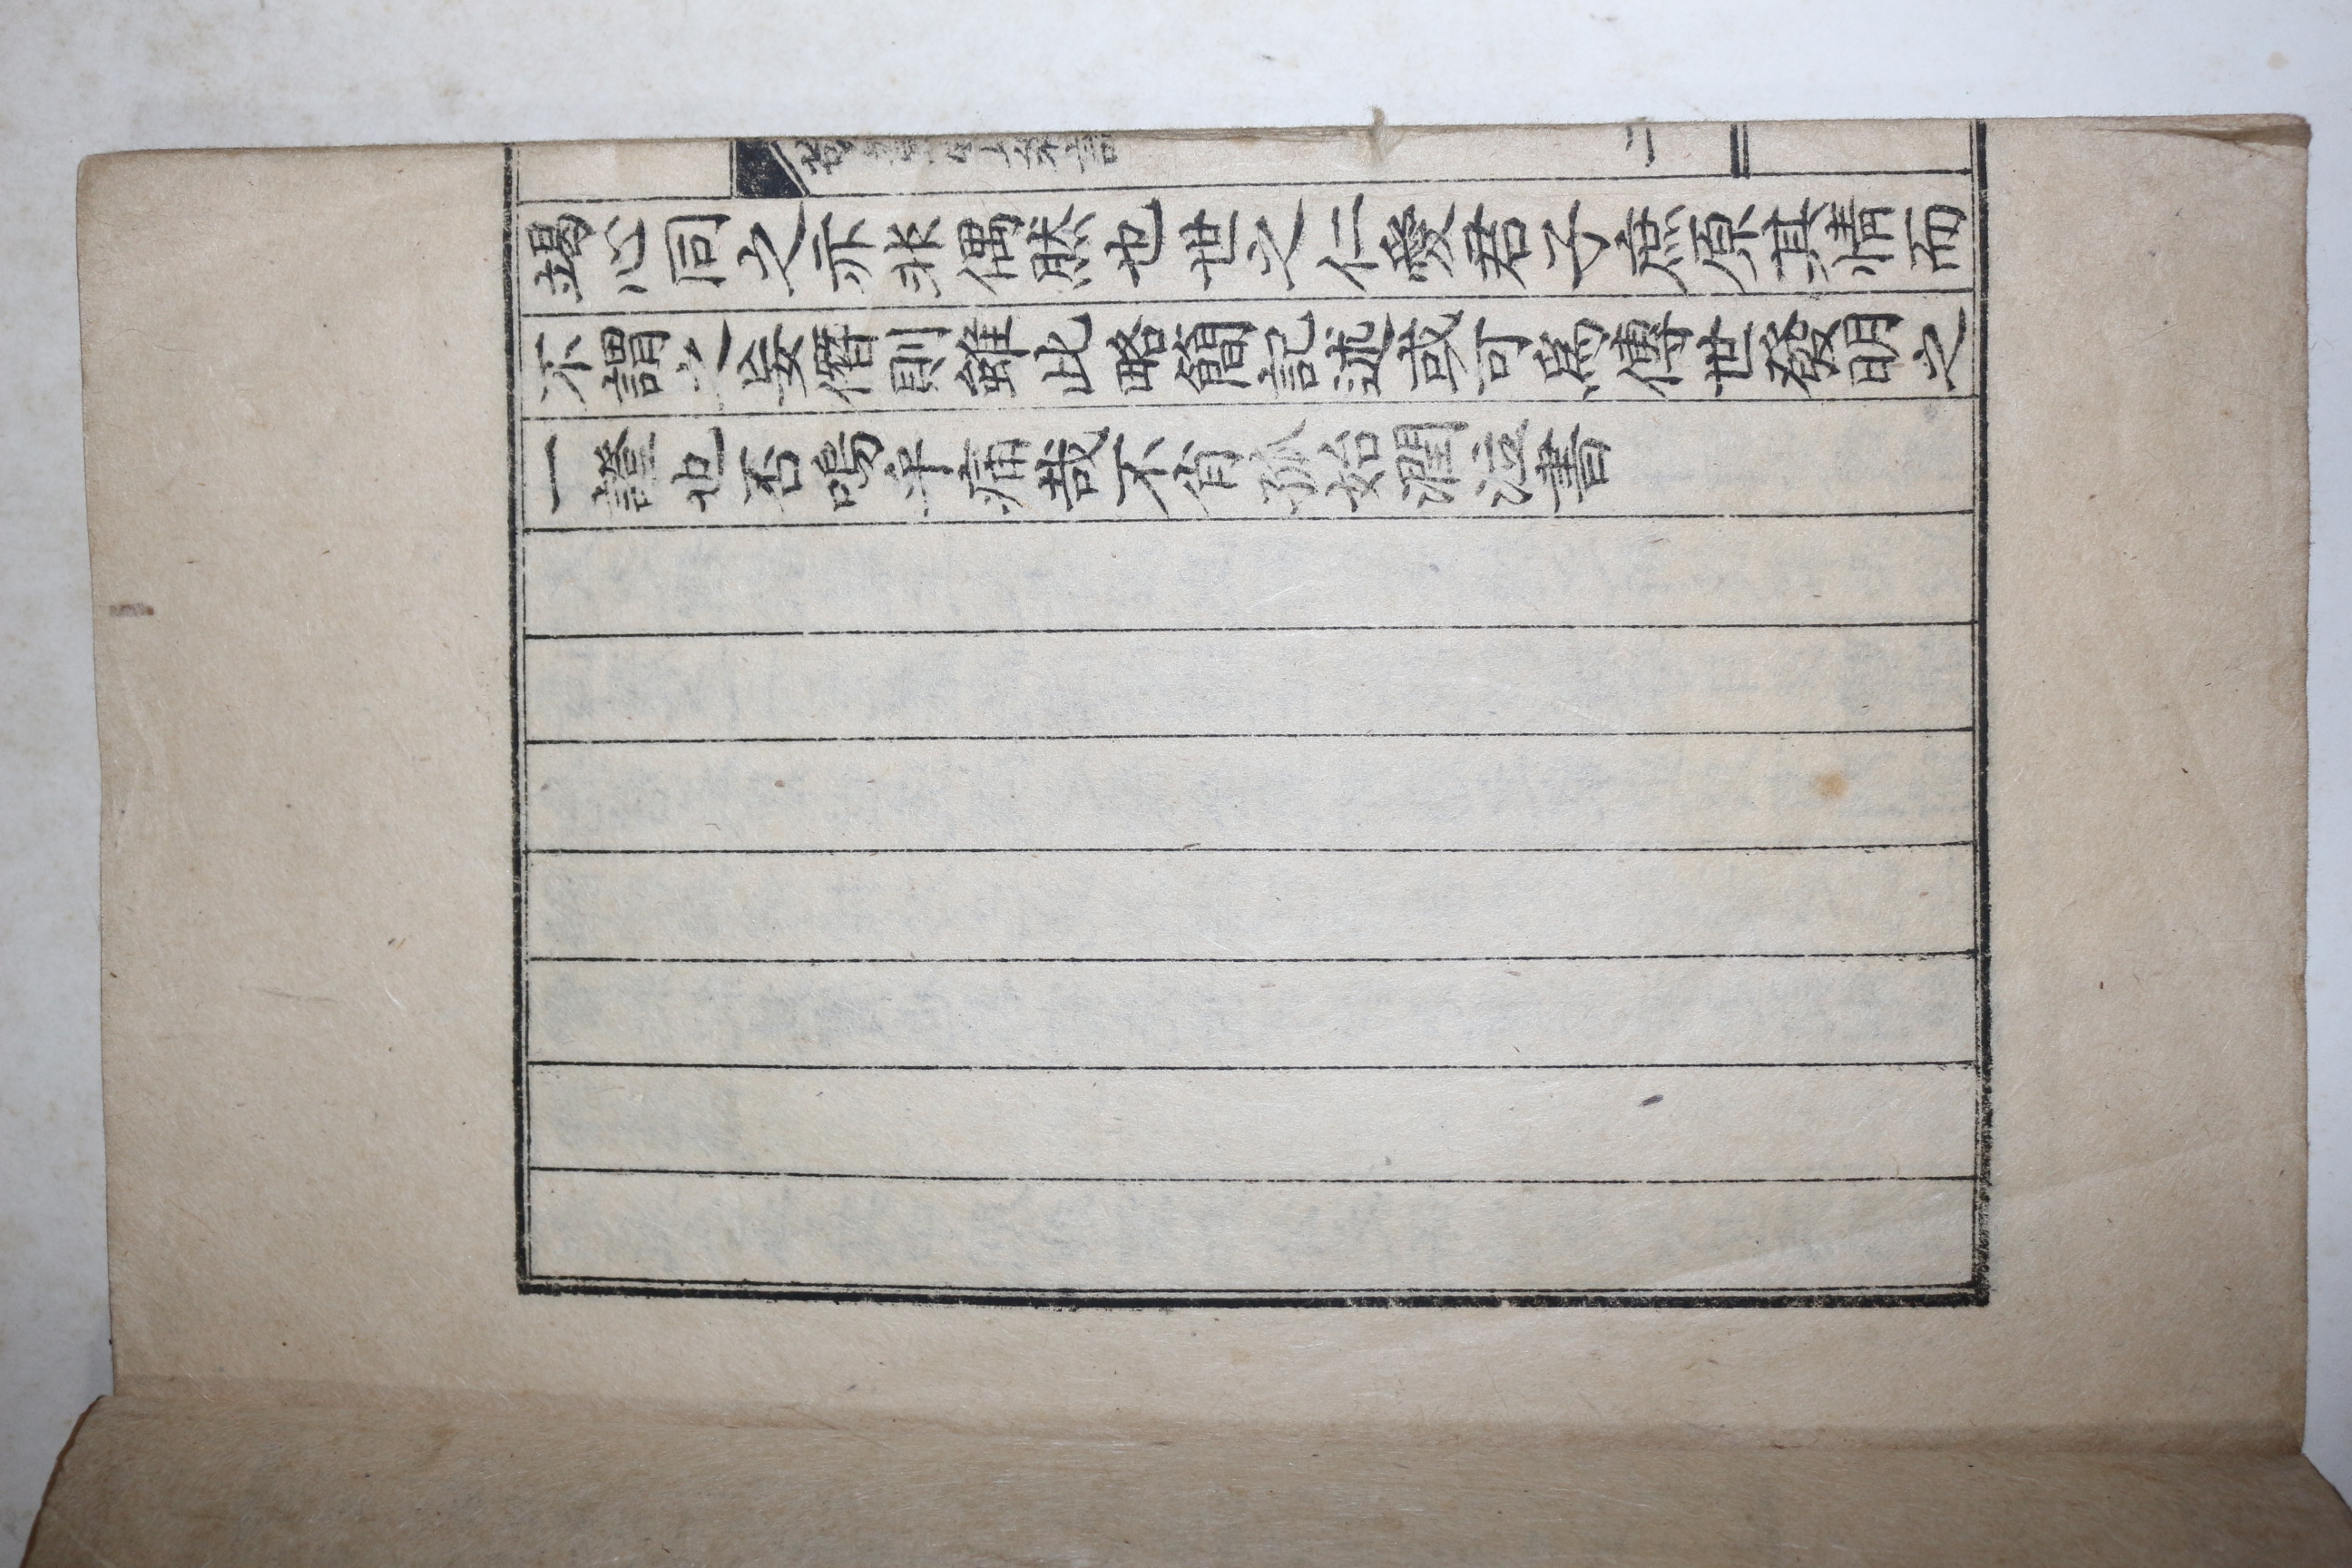 竭心同之亦非偶然也世之仁愛君子庶原其情而
不謂之妄僭則雖此略簡記述或可爲傳世發明之
一證也否嗚乎痛哉不肖孤始瀅泣書